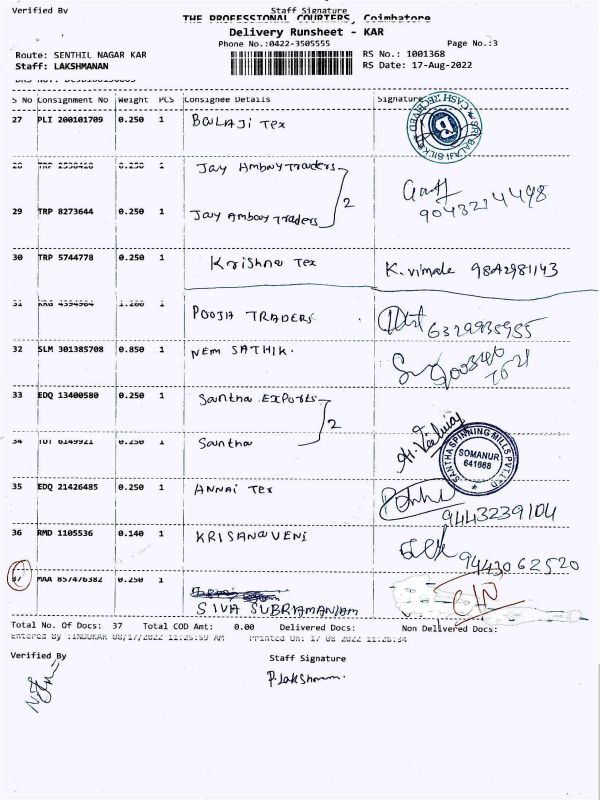 Verified By Staff Signature
THE PROFESSIONAL COURIERS, Coimbatore
Delivery Runsheet - KAR
Phone No.:0422-3505555 Page No.:3
Route: SENTHIL NAGAR KAR RS No.: 1001368
Staff: LAKSHMANAN RS Date: 17-Aug-2022
S No Consignment No Weight PCS Consignee Details Signature
27 PLI 200101709 0.250 1 BALAJI Tex
SRI BALAJI SILK CASH RECEIVED
28 TRP 0.250 1 Jay Ambay Traders
2
29 TRP 8273644 0.250 1 Jay Ambay Traders
30 TRP 5744778 0.250 1 Krishna Tex K. vimale 9842981143
31 1 POOJA TRADERS 6329935955
32 SLM 301385708 0.850 1 NEM SATHIK.
33 EDQ 13400580 0.250 1 Santha EXPorts
2
34 0.250 1 Santha
SANTHA SPINNING MILLS PVT LTD
SOMANUR
641668
35 EDQ 21426485 0.250 1 ANNAI Tex 9443239104
36 RMD 1105536 0.140 1 KRISANAVENI 9443062520
37 MAA 857476382 0.250 1
SIVA SUBRAMANIAM
Total No. Of Docs: 37 Total COD Amt: 0.00 Delivered Docs: Non Delivered Docs:
Verified By Staff Signature